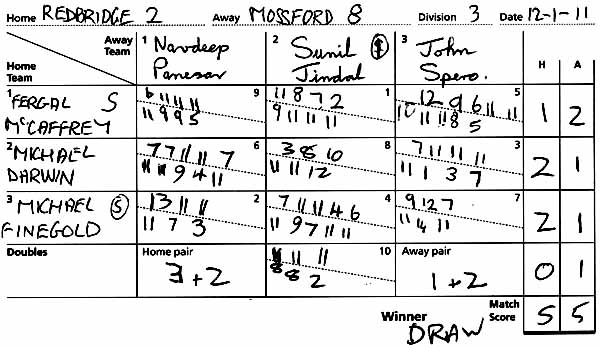 Home REDBRIDGE 2 Away MOSSFORD 8 Division 3 Date 12-1-11
Away Team
Home Team
1 Navdeep Panesar
2 Sunil Jindal
3 John Spero.
H A
1 FERGAL S
McCAFFREY
9
6 11 11 11
11 9 9 5
1
11 8 7 2
9 11 11 11
5
12 9 6
10 11 11 8
1 2
2 MICHAEL
DARWIN
6
7 7 11 11 7
11 11 9 4 11
8
3 8 10
11 11 12
3
7 11 11 11
11 1 3 7
2 1
3 MICHAEL S
FINEGOLD
2
13 11 11
11 7 3
4
7 11 11 4 6
11 9 7 11 11
7
9 12 7
11 14 11
2 1
Doubles
Home pair
3 + 2
10
11 11
8 8 2
Away pair
1 + 2
0 1
Winner DRAW
Match Score 5 5